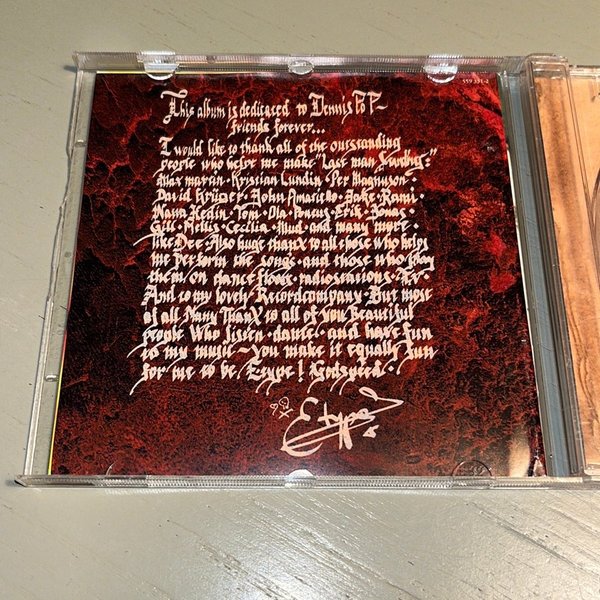 559 331-2
This album is dedicated to Dennis PoP-
friends forever...
I would like to thank all of the outstanding
people who helpt me make "Last man Standing:"
Max martin · Kristian Lundin · Per Magnuson ·
David Krüger · John Amatiello · Jake · Rami ·
Nana Hedin · Tom · Ola · Pontus · Erik · Jonas ·
Gitt · Mettis · Cecilia · Mud · and many more
like Dee · Also huge thanx to all those who helps
me perform the songs · and those who play
them on dance floors · radiostations · Tv ·
And to my lovely Recordcompany · But most
of all Many ThanX to all of you Beautiful
people Who listen · dance · and have fun
to my music ~ you make it equally fun
for me to be E-type! Godspeed ·
E-type